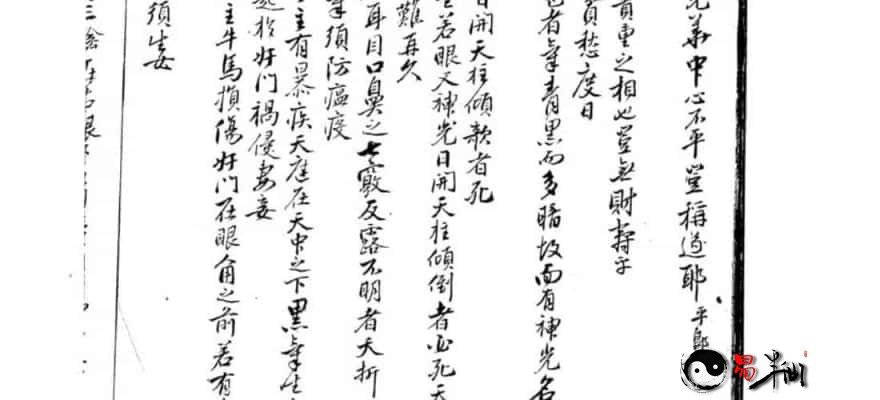 華中心不平豈稱道耶平郎
貴重之相也豈無財壽乎
貧愁度日
者氣青黑而多暗故面有神光名
日開天柱傾欹者死
若眼又神光日開天柱傾倒者必死天
難再久
耳目口鼻之七竅反露不明者夭折
須防瘟疫
主有暴疾天庭在天中之下黑氣生
於奸門禍侵妻妾
主牛馬損傷奸門在眼角之前若有
須
易半仙